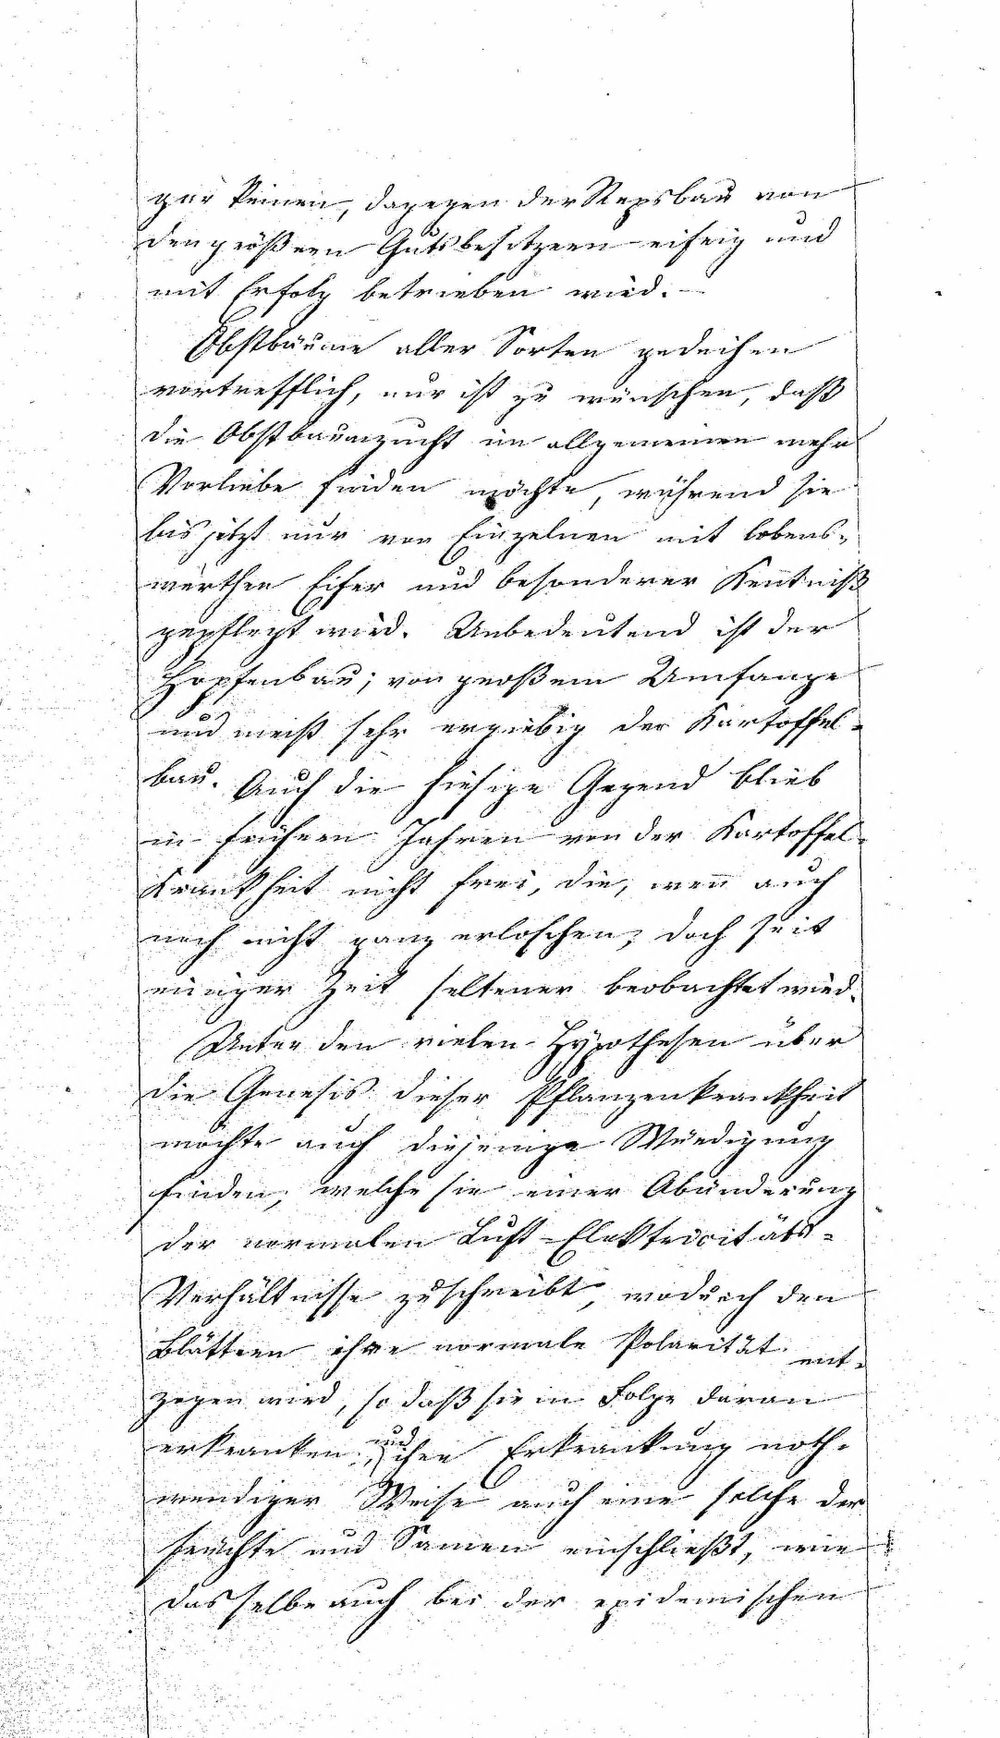 gar keinen, dagegen der Repsbau von
den größern Gutsbesitzern eifrig und
mit Erfolg betrieben wird. –
Obstbäume aller Sorten gedeihen
vortrefflich, nur ist zu wünschen, daß
die Obstbaumzucht im allgemeinen mehr
Vorliebe finden möchte, während sie
bis jetzt nur von Einzelnen mit lobens-
werthen Eifer und besonderer Kentniß
gepflegt wird. Unbedeutend ist der
Hopfenbau; von großem Umfange
und meist sehr ergiebig der Kartoffel-
bau. Auch die hiesige Gegend blieb
in frühern Jahren von der Kartoffel-
Krankheit nicht frei, die, wen̄ auch
noch nicht ganz erloschen, doch seit
einiger Zeit seltener beobachtet wird.
Unter den vielen Hypothesen über
die Genesis dieser Pflanzenkrankheit
möchte auch diejenige Würdigung
finden, welche sie einer Abänderung
der normalen Luft-Elektricitäts-
Verhältnisse zuschreibt, wodurch den
Blättern ihre normale Polarität ent-
zogen wird, so daß sie in Folge daran
erkranken, und ihre Erkrankung noth-
wendiger Weise auch eine solche der
Früchte und Samen einschließt, wie
dasselbe auch bei der epidemischen